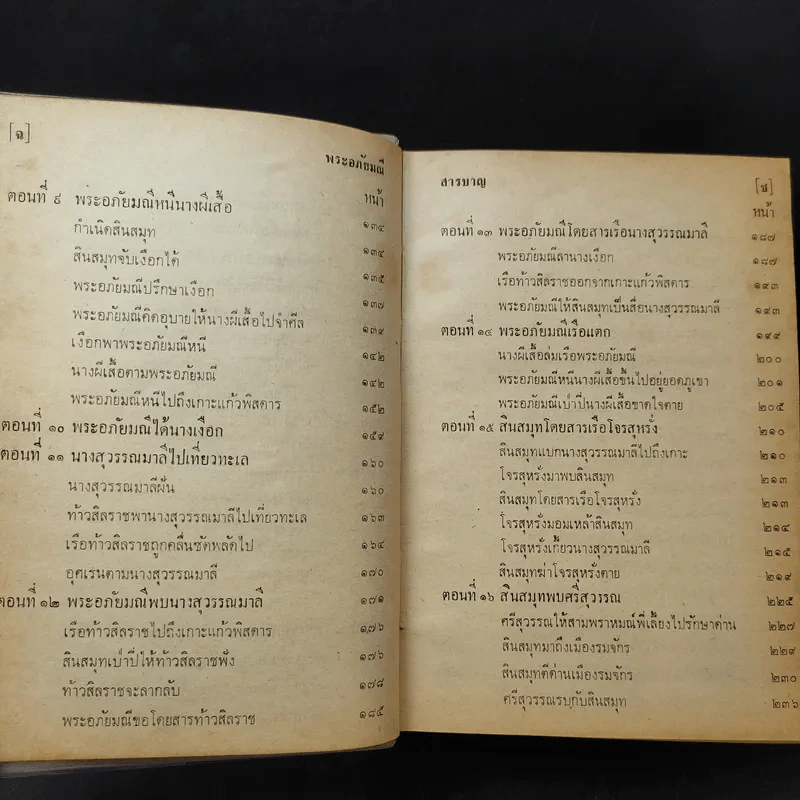 [ฉ]
พระอภัยมณี
หน้า
ตอนที่ ๙ พระอภัยมณีหนีนางผีเสื้อ ๑๓๔
กำเนิดสินสมุท ๑๓๔
สินสมุทจับเงือกได้ ๑๓๕
พระอภัยมณีปรึกษาเงือก ๑๓๗
พระอภัยมณีคิดอุบายให้นางผีเสื้อไปจำศีล ๑๓๙
เงือกพาพระอภัยมณีหนี ๑๔๒
นางผีเสื้อตามพระอภัยมณี ๑๔๒
พระอภัยมณีหนีไปถึงเกาะแก้วพิสดาร ๑๕๒
ตอนที่ ๑๐ พระอภัยมณีได้นางเงือก ๑๕๙
ตอนที่ ๑๑ นางสุวรรณมาลีไปเที่ยวทะเล ๑๖๐
นางสุวรรณมาลีฝัน ๑๖๐
ท้าวสิลราชพานางสุวรรณมาลีไปเที่ยวทะเล ๑๖๓
เรือท้าวสิลราชถูกคลื่นซัดพลัดไป ๑๖๔
อุศเรนตามนางสุวรรณมาลี ๑๗๐
ตอนที่ ๑๒ พระอภัยมณีพบนางสุวรรณมาลี ๑๗๑
เรือท้าวสิลราชไปถึงเกาะแก้วพิสดาร ๑๗๖
สินสมุทเป่าปี่ให้ท้าวสิลราชฟัง ๑๗๖
ท้าวสิลราชจะลากลับ ๑๗๘
พระอภัยมณีขอโดยสารท้าวสิลราช ๑๘๕
สารบาญ
[ช]
หน้า
ตอนที่ ๑๓ พระอภัยมณีโดยสารเรือนางสุวรรณมาลี ๑๘๗
พระอภัยมณีลานางเงือก ๑๘๗
เรือท้าวสิลราชออกจากเกาะแก้วพิสดาร ๑๙๓
พระอภัยมณีให้สินสมุทเป็นสื่อนางสุวรรณมาลี ๑๙๓
ตอนที่ ๑๔ พระอภัยมณีเรือแตก ๑๙๙
นางผีเสื้อล่มเรือพระอภัยมณี ๒๐๐
พระอภัยมณีหนีนางผีเสื้อขึ้นไปอยู่ยอดภูเขา ๒๐๑
พระอภัยมณีเป่าปี่นางผีเสื้อขาดใจตาย ๒๐๕
ตอนที่ ๑๕ สินสมุทโดยสารเรือโจรสุหรั่ง ๒๑๐
สินสมุทแบกนางสุวรรณมาลีไปถึงเกาะ ๒๑๐
โจรสุหรั่งมาพบสินสมุท ๒๑๓
สินสมุทโดยสารเรือโจรสุหรั่ง ๒๑๓
โจรสุหรั่งมอมเหล้าสินสมุท ๒๑๔
โจรสุหรั่งเกี้ยวนางสุวรรณมาลี ๒๑๕
สินสมุทฆ่าโจรสุหรั่งตาย ๒๑๙
ตอนที่ ๑๖ สินสมุทพบศรีสุวรรณ ๒๒๕
ศรีสุวรรณให้สามพราหมณ์พี่เลี้ยงไปรักษาด่าน ๒๒๗
สินสมุทมาถึงเมืองรมจักร ๒๒๙
สินสมุทตีด่านเมืองรมจักร ๒๓๐
ศรีสุวรรณรบกับสินสมุท ๒๓๖